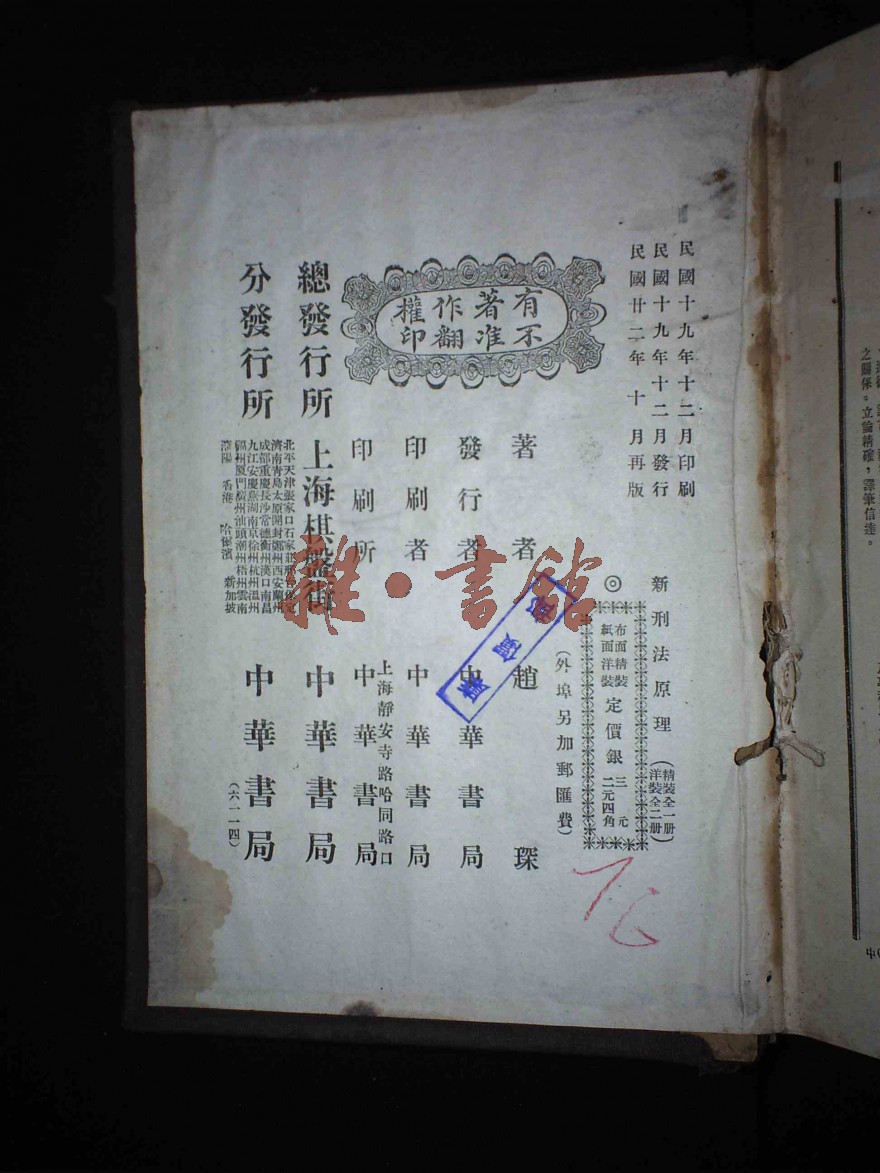 民國十九年十二月印刷
民國十九年十二月發行
民國廿二年十月再版
新刑法原理
(精裝全一册
洋裝全二册)
◎
布面精裝
紙面洋裝
定價銀
三元
二元四角
(外埠另加郵匯費)
有著作權
不准翻印
著者 趙琛
發行者 中華書局
印刷者 中華書局
上海靜安寺路哈同路口
印刷所 中華書局
總發行所 上海棋盤街 中華書局
分發行所
北平天津張家口石家莊
濟南青島太原開封鄭州西安蘭州
成都重慶長沙常德衡州漢口南昌
九江安慶蕪湖南京徐州杭州溫州
福州厦門廣州汕頭潮州梧州雲南
瀋陽 香港 哈爾濱 新加坡
中華書局
(六一一四)
雜·書館
76
之關係。立論精確,譯筆信達。